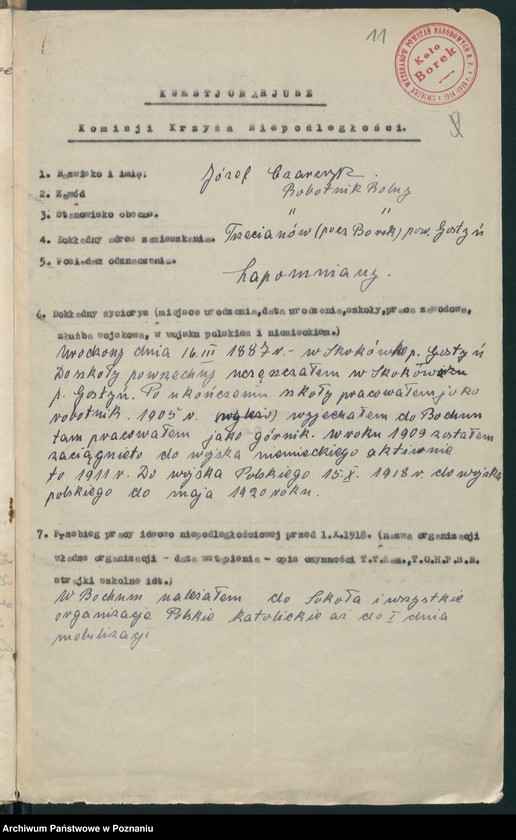 11
ZWIĄZEK WETERANÓW POWSTAŃ NARODOWYCH R.P. 1914-1919
Koło
Borek
KWESTJONARJUSZ
Komisji Krzyża Niepodległości.
1. Nazwisko i imię: Józef Czarczyk.
2. Zawód Robotnik Rolny
3. Stanowisko obecne. " "
4. Dokładny adres zamieszkania. Trzecianów (pocz Borek) pow. Gostyń
5. Posiadan odznaczenia. Zapomniany.
6. Dokładny życiorys (miejsce urodzenia, data urodzenia, szkoły, praca zawodowa,
służba wojskowa, w wojsku polskiem i niemieckiem.)
Urodzony dnia 16.III 1887 r. - w Skoków p. Gostyń
Do szkoły powszechny uczęszczałem w Skoków
p. Gostyń. Po ukończeniu szkoły pracowałem jako
robotnik. 1905 r. wyjechałem do Bochum
tam pracowałem jako górnik. w roku 1909 zostałem
zaciągnięto do wojska niemieckiego aktiwnie
to 1911 r. Do wojska Polskiego 15.X. 1918 r. do wojska
polskiego do maja 1920 roku.
7. Przebieg pracy ideowo niepodległościowej przed 1.X.1918. (nazwa organizacji
władze organizacji - data wstąpienia - opis czynności T.T.Zan., T.O.H.P.S.H.
strajki szkolne idt.)
W Bochum należałem do Sokoła i wszystkie
organizacje Polskie katolickie aż do I dnia
mobilizacji
Archiwum Państwowe w Poznaniu